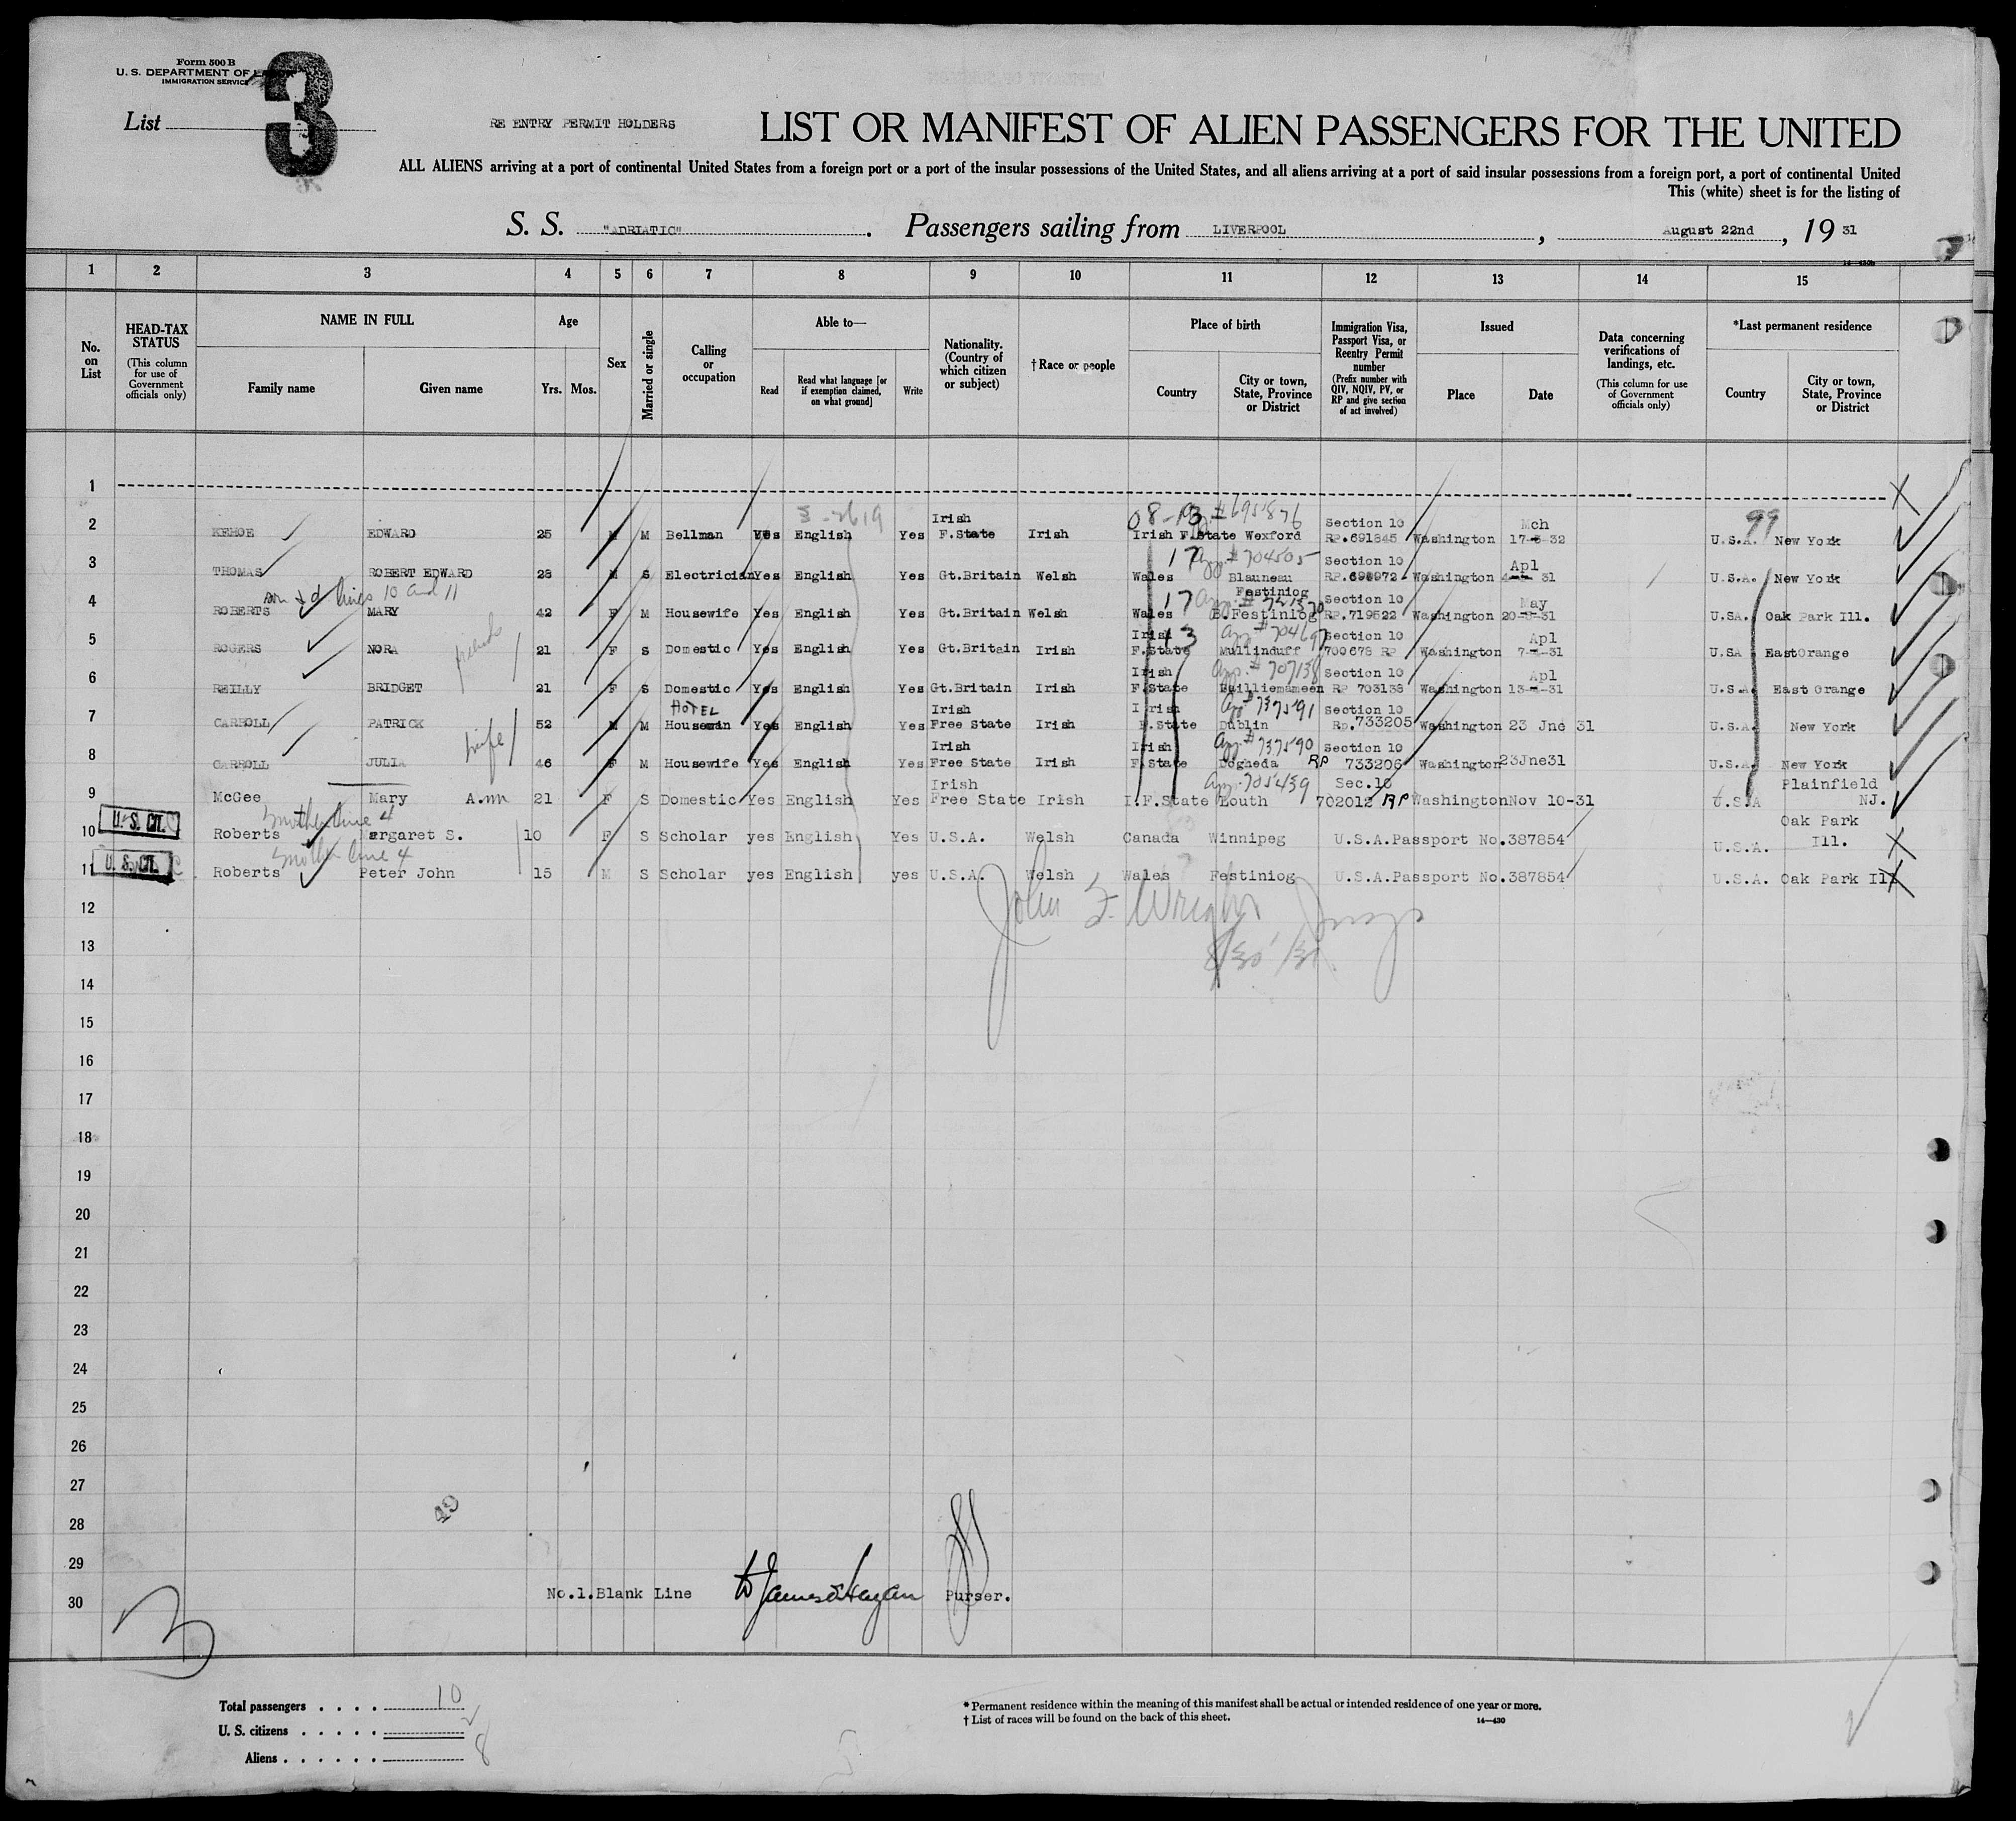 Form 500 B
U. S. DEPARTMENT OF LABOR
IMMIGRATION SERVICE
3
List
RE ENTRY PERMIT HOLDERS
LIST OR MANIFEST OF ALIEN PASSENGERS FOR THE UNITED
ALL ALIENS arriving at a port of continental United States from a foreign port or a port of the insular possessions of the United States, and all aliens arriving at a port of said insular possessions from a foreign port, a port of continental United
This (white) sheet is for the listing of
S. S. "ADRIATIC". Passengers sailing from LIVERPOOL, August 22nd, 19 31
1 2 3 4 5 6 7 8 9 10 11 12 13 14 15
No. on List
HEAD-TAX STATUS (This column for use of Government officials only)
NAME IN FULL
Family name Given name
Age
Yrs. Mos.
Sex
Married or single
Calling or occupation
Able to—
Read Read what language [or if exemption claimed, on what ground] Write
Nationality. (Country of which citizen or subject)
† Race or people
Place of birth
Country City or town, State, Province or District
Immigration Visa, Passport Visa, or Reentry Permit number (Prefix number with QIV, NQIV, PV, or RP and give section of act involved)
Issued
Place Date
Data concerning verifications of landings, etc. (This column for use of Government officials only)
*Last permanent residence
Country City or town, State, Province or District
1
2 KEHOE EDWARD 25 M M Bellman Yes English Yes Irish F.State Irish Irish F.State Wexford Section 10 RP.691845 Washington 17-3-32 Mch U.S.A. New York
99
3 THOMAS ROBERT EDWARD 28 M S Electrician Yes English Yes Gt.Britain Welsh Wales Blauneau Festiniog Section 10 RP.696972 Washington Apl 31 U.S.A. New York
17 App. # 704505
son & d lines 10 and 11
4 ROBERTS MARY 42 F M Housewife Yes English Yes Gt.Britain Welsh Wales B.Festiniog Section 10 RP.719522 Washington May 20-5-31 U.SA. Oak Park Ill.
17
5 ROGERS NORA 21 F S Domestic Yes English Yes Gt.Britain Irish Irish F.State Mullinduff Section 10 700678 RP Washington Apl 7-4-31 U.SA EastOrange
App. # 704697
friends
6 REILLY BRIDGET 21 F S Domestic Yes English Yes Gt.Britain Irish Irish F.State Bailliemameen Section 10 RP 703138 Washington Apl 13-4-31 U.S.A. East Orange
App. # 707138
7 CARROLL PATRICK 52 M M HOTEL Houseman Yes English Yes Irish Free State Irish Irish F.State Dublin Section 10 Rp.733205 Washington 23 Jne 31 U.S.A. New York
App # 737591
wife
8 CARROLL JULIA 46 F M Housewife Yes English Yes Irish Free State Irish Irish F.State Dogheda Section 10 RP 733206 Washington 23Jne31 U.S.A. New York
App. # 737590
9 McGee Mary Ann 21 F S Domestic Yes English Yes Irish Free State Irish I.F.State Louth Sec.10 702012 RP Washington Nov 10-31 U.S.A Plainfield NJ.
App. 705439
mother line 4
U. S. CIT.
10 Roberts Margaret S. 10 F S Scholar yes English Yes U.S.A. Welsh Canada Winnipeg U.S.A.Passport No.387854 U.S.A. Oak Park Ill.
mother line 4
U. S. CIT.
11 Roberts Peter John 15 M S Scholar yes English yes U.S.A. Welsh Wales Festiniog U.S.A.Passport No.387854 U.S.A. Oak Park Ill
12
13
14
15
16
17
18
19
20
21
22
23
24
25
26
27
28
29
30
49
No.1.Blank Line
Purser.
3
Total passengers . . . . 10
U. S. citizens . . . . . 2
Aliens . . . . . . 8
* Permanent residence within the meaning of this manifest shall be actual or intended residence of one year or more.
† List of races will be found on the back of this sheet.
14—430